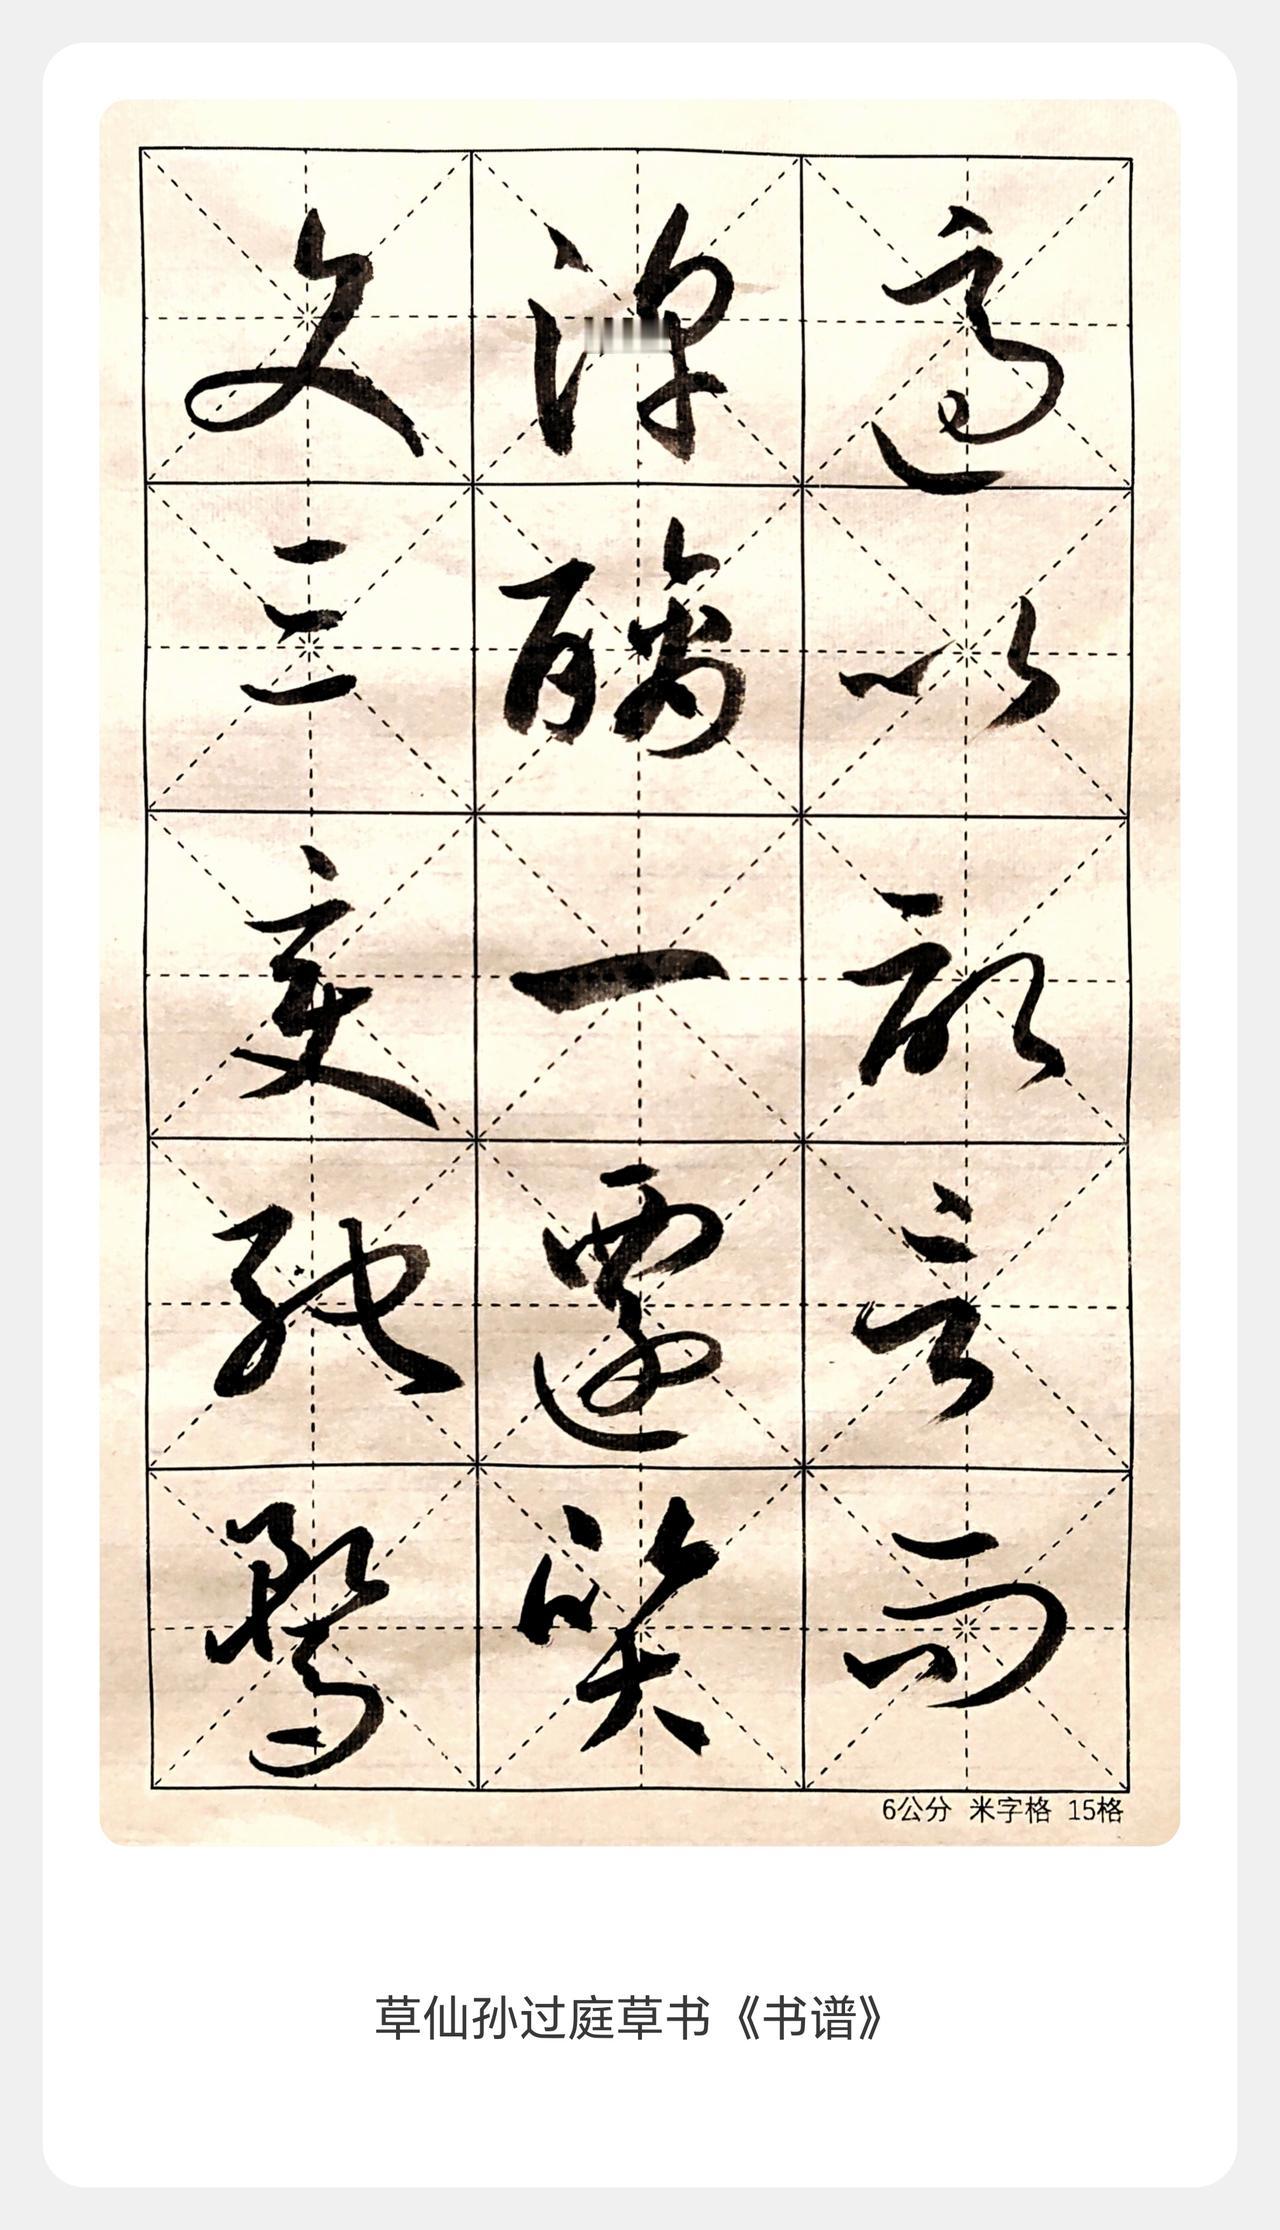 適以記言而
淳醨一遷質
文三變馳騖
6公分 米字格 15格
草仙孙过庭草书《书谱》